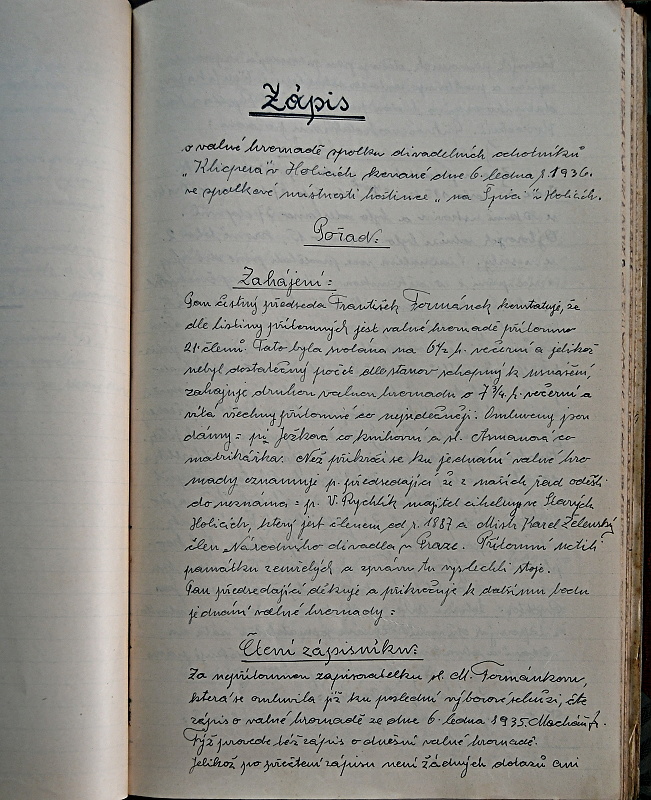 Zápis
o valné hromadě spolku divadelních ochotníků
„Klicpera" v Holicích konané dne 6. ledna r. 1936.
ve spolkové místnosti hostince „na Špici" v Holicích.
Pořad:
Zahájení:
Pan čestný předseda František Formánek konstatuje, že
dle listiny přítomných jest valné hromadě přítomno
21. členů. Tato byla svolána na 6½ h. večerní a jelikož
nebyl dostatečný počet dle stanov schopný k usnášení,
zahajuje druhou valnou hromadu o 7¾. h. večerní a
vítá všechny přítomné co nejsrdečněji. Omluveny jsou
dámy = pí Ježková co knihovní a sl. Asmanová co
matrikářka. Než přikročí se ku jednání valné hro
mady oznamuje p. předsedající že z našich řad odešli
do neznáma = p. V. Rychlík majitel cihelny ve Starých
Holicích, který jest členem od r. 1887 a Mistr Karel Želenský
člen Národního divadla v Praze. Přítomní uctili
památku zemřelých a zprávu tu vyslechli stoje.
Pan předsedající děkuje a přikročuje k dalšímu bodu
jednání valné hromady =
Čtení zápisníku:
Za nepřítomnou zapisovatelku sl. M. Formánkovu,
která se omluvila již ku poslední výborové schůzi, čte
zápis o valné hromadě ze dne 6. ledna 1935
Týž provede též zápis o dnešní valné hromadě.
Jelikož po přečtení zápisu není žádných dotazů ani